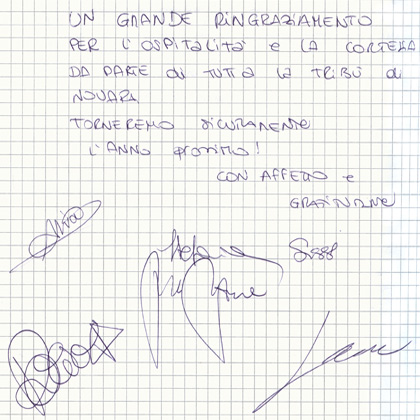 UN GRANDE RINGRAZIAMENTO
PER L'OSPITALITÀ e LA CORTESIA
DA PARTE di TUTTA LA TRIBÙ di
NOVARA
TORNEREMO SICURAMENTE
L'ANNO PROSSIMO!
CON AFFETTO e
GRATITUDINE
Stefania